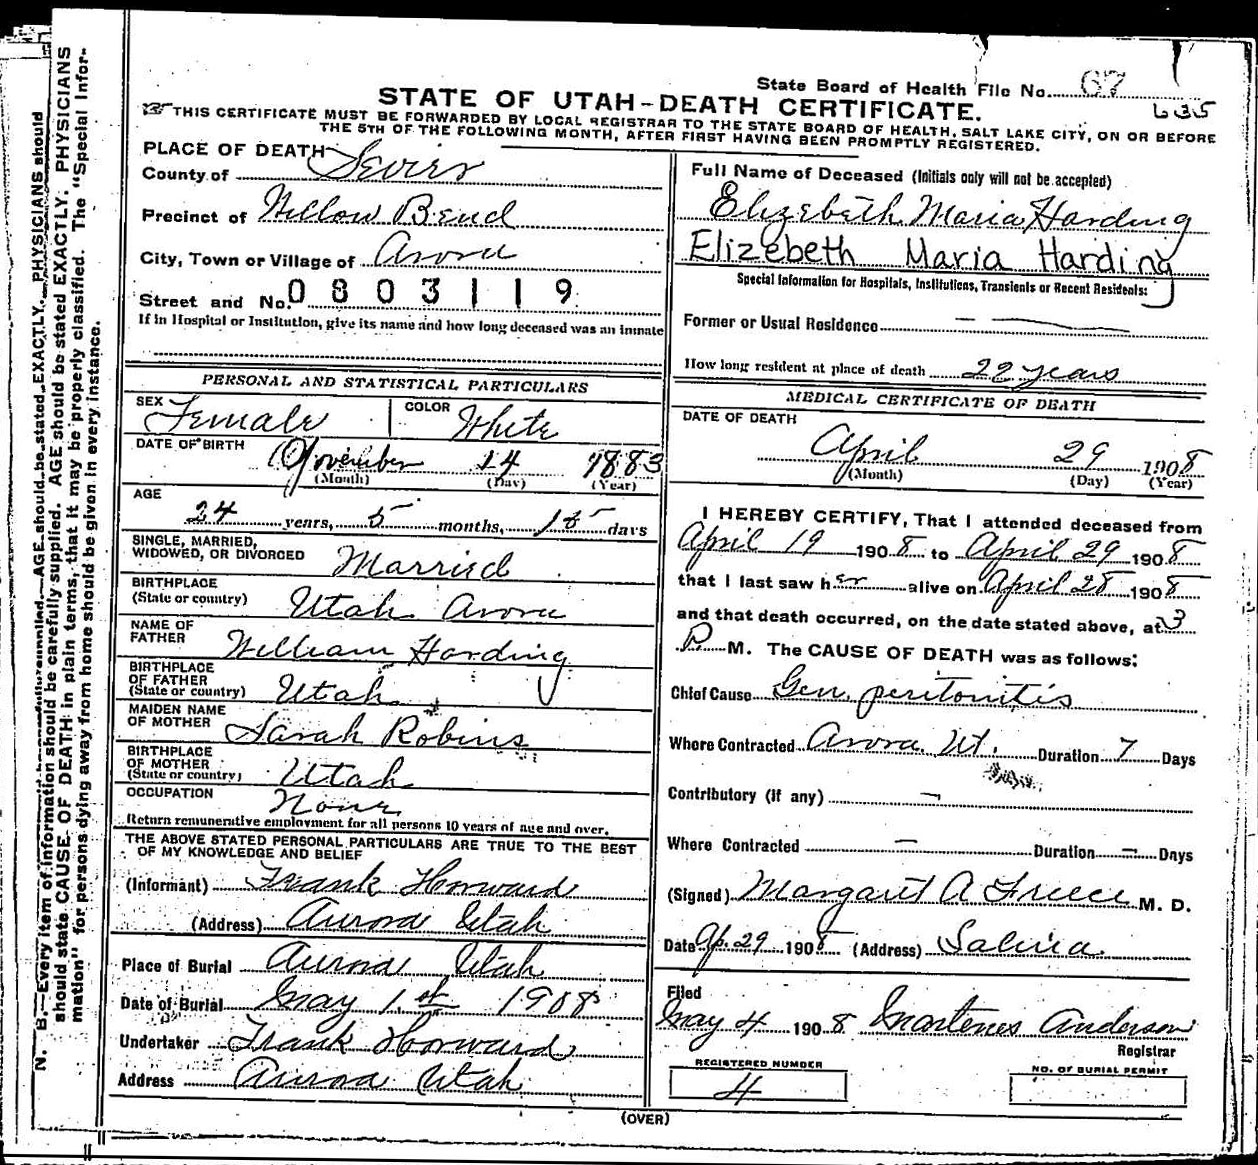 State Board of Health File No. 67
635
STATE OF UTAH-DEATH CERTIFICATE.
THIS CERTIFICATE MUST BE FORWARDED BY LOCAL REGISTRAR TO THE STATE BOARD OF HEALTH, SALT LAKE CITY, ON OR BEFORE
THE 5TH OF THE FOLLOWING MONTH, AFTER FIRST HAVING BEEN PROMPTLY REGISTERED.
PLACE OF DEATH
County of Sevier
Precinct of Willow Bend
City, Town or Village of Arora
Street and No. 0803119
If in Hospital or Institution, give its name and how long deceased was an inmate
PERSONAL AND STATISTICAL PARTICULARS
SEX Female
COLOR White
DATE OF BIRTH November 14 1883
(Month) (Day) (Year)
AGE
24 years, 5 months, 15 days
SINGLE, MARRIED,
WIDOWED, OR DIVORCED Married
BIRTHPLACE
(State or country) Utah Arora
NAME OF
FATHER William Harding
BIRTHPLACE
OF FATHER
(State or country) Utah
MAIDEN NAME
OF MOTHER Sarah Robins
BIRTHPLACE
OF MOTHER
(State or country) Utah
OCCUPATION None
Return remunerative employment for all persons 10 years of age and over.
THE ABOVE STATED PERSONAL PARTICULARS ARE TRUE TO THE BEST
OF MY KNOWLEDGE AND BELIEF
(Informant) Frank Horward
(Address) Aurora Utah
Place of Burial Aurora Utah
Date of Burial May 1st 1908
Undertaker Frank Horward
Address Aurora Utah
Full Name of Deceased (Initials only will not be accepted)
Elizebeth Maria Harding
Elizebeth Maria Harding
Special Information for Hospitals, Institutions, Transients or Recent Residents:
Former or Usual Residence —
How long resident at place of death 22 years
MEDICAL CERTIFICATE OF DEATH
DATE OF DEATH
April 29 1908
(Month) (Day) (Year)
I HEREBY CERTIFY, That I attended deceased from
April 19 1908 to April 29 1908
that I last saw her alive on April 28 1908
and that death occurred, on the date stated above, at 3
P. M. The CAUSE OF DEATH was as follows:
Chief Cause Gen. peritonitis
Where Contracted Arora Ut. Duration 7 Days
Contributory (if any) —
Where Contracted — Duration — Days
(Signed) Margaret A Freece M. D.
Date Ap. 29 1908 (Address) Salina
Filed
May 4 1908 Mortenes Anderson
Registrar
REGISTERED NUMBER
4
NO. OF BURIAL PERMIT
(OVER)
N. B.—Every item of information should be carefully supplied. AGE should be stated EXACTLY. PHYSICIANS should
should state CAUSE OF DEATH in plain terms, that it may be properly classified. The "Special Infor-
mation" for persons dying away from home should be given in every instance.